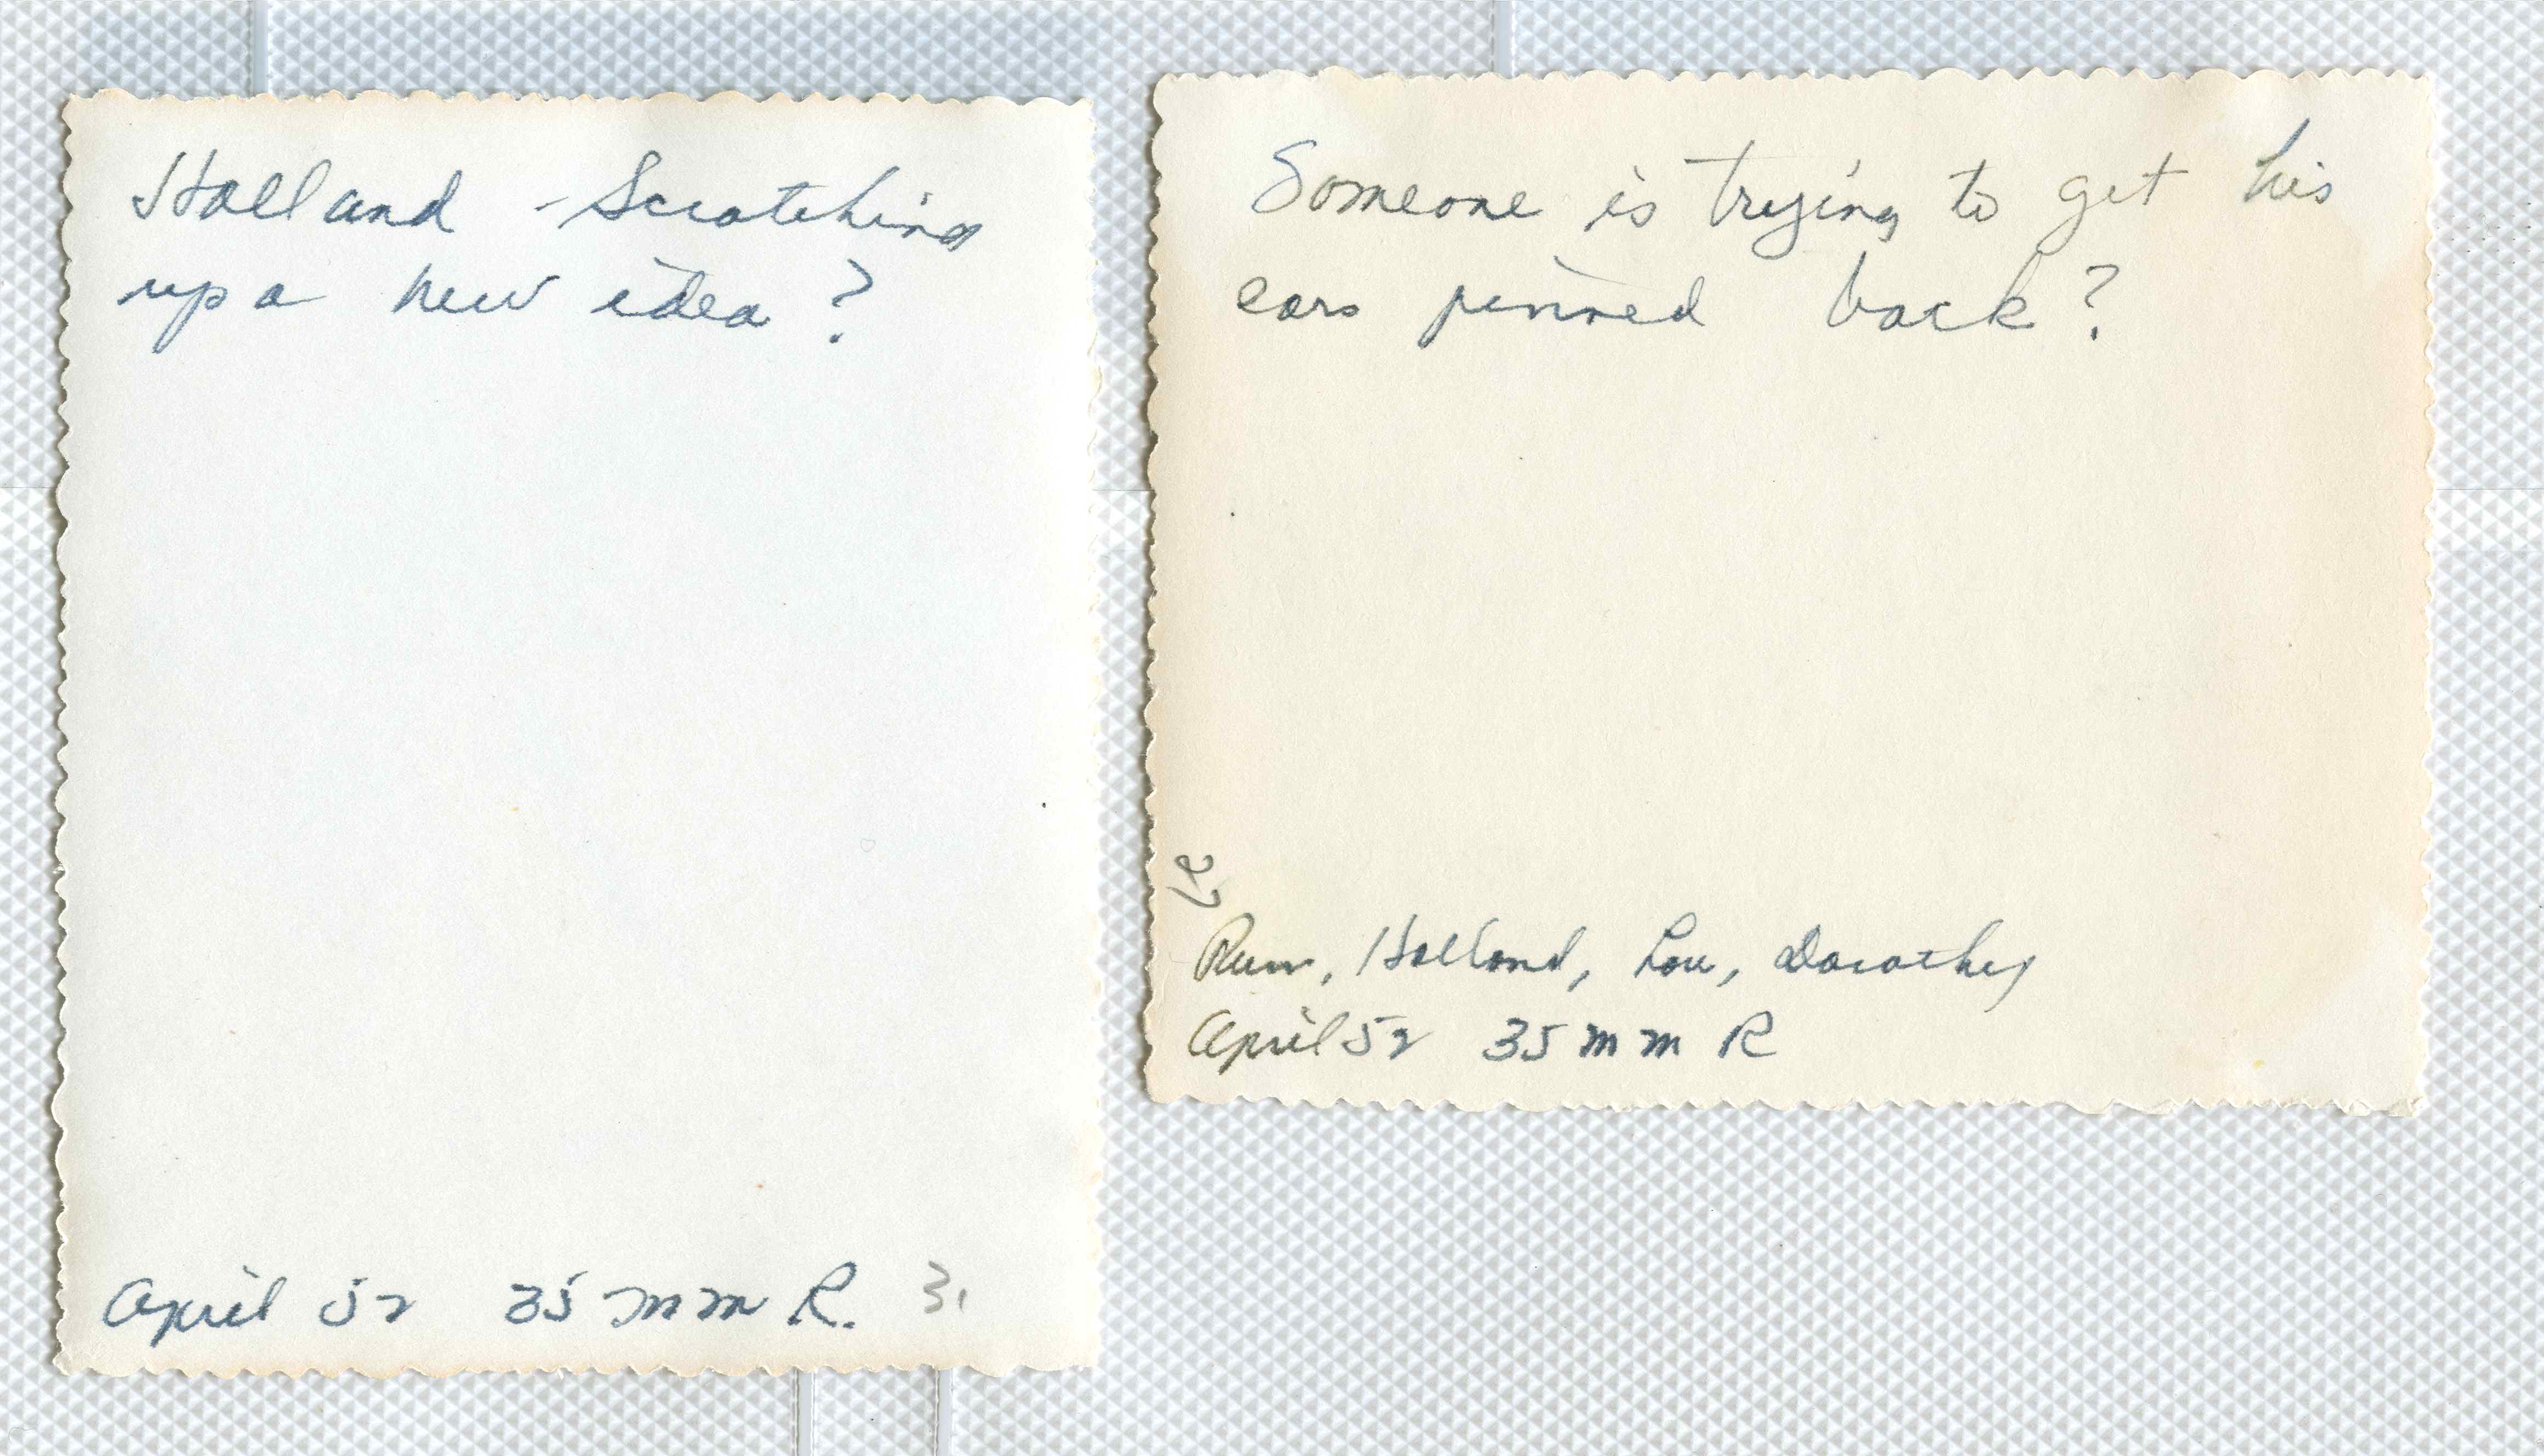 Holland - Scratching
up a new idea ?
April 52 35 mm R. 3.
Someone is trying to get his
ears pinned back ?
Holland, Lou, Dorothy
April 52 35 mm R